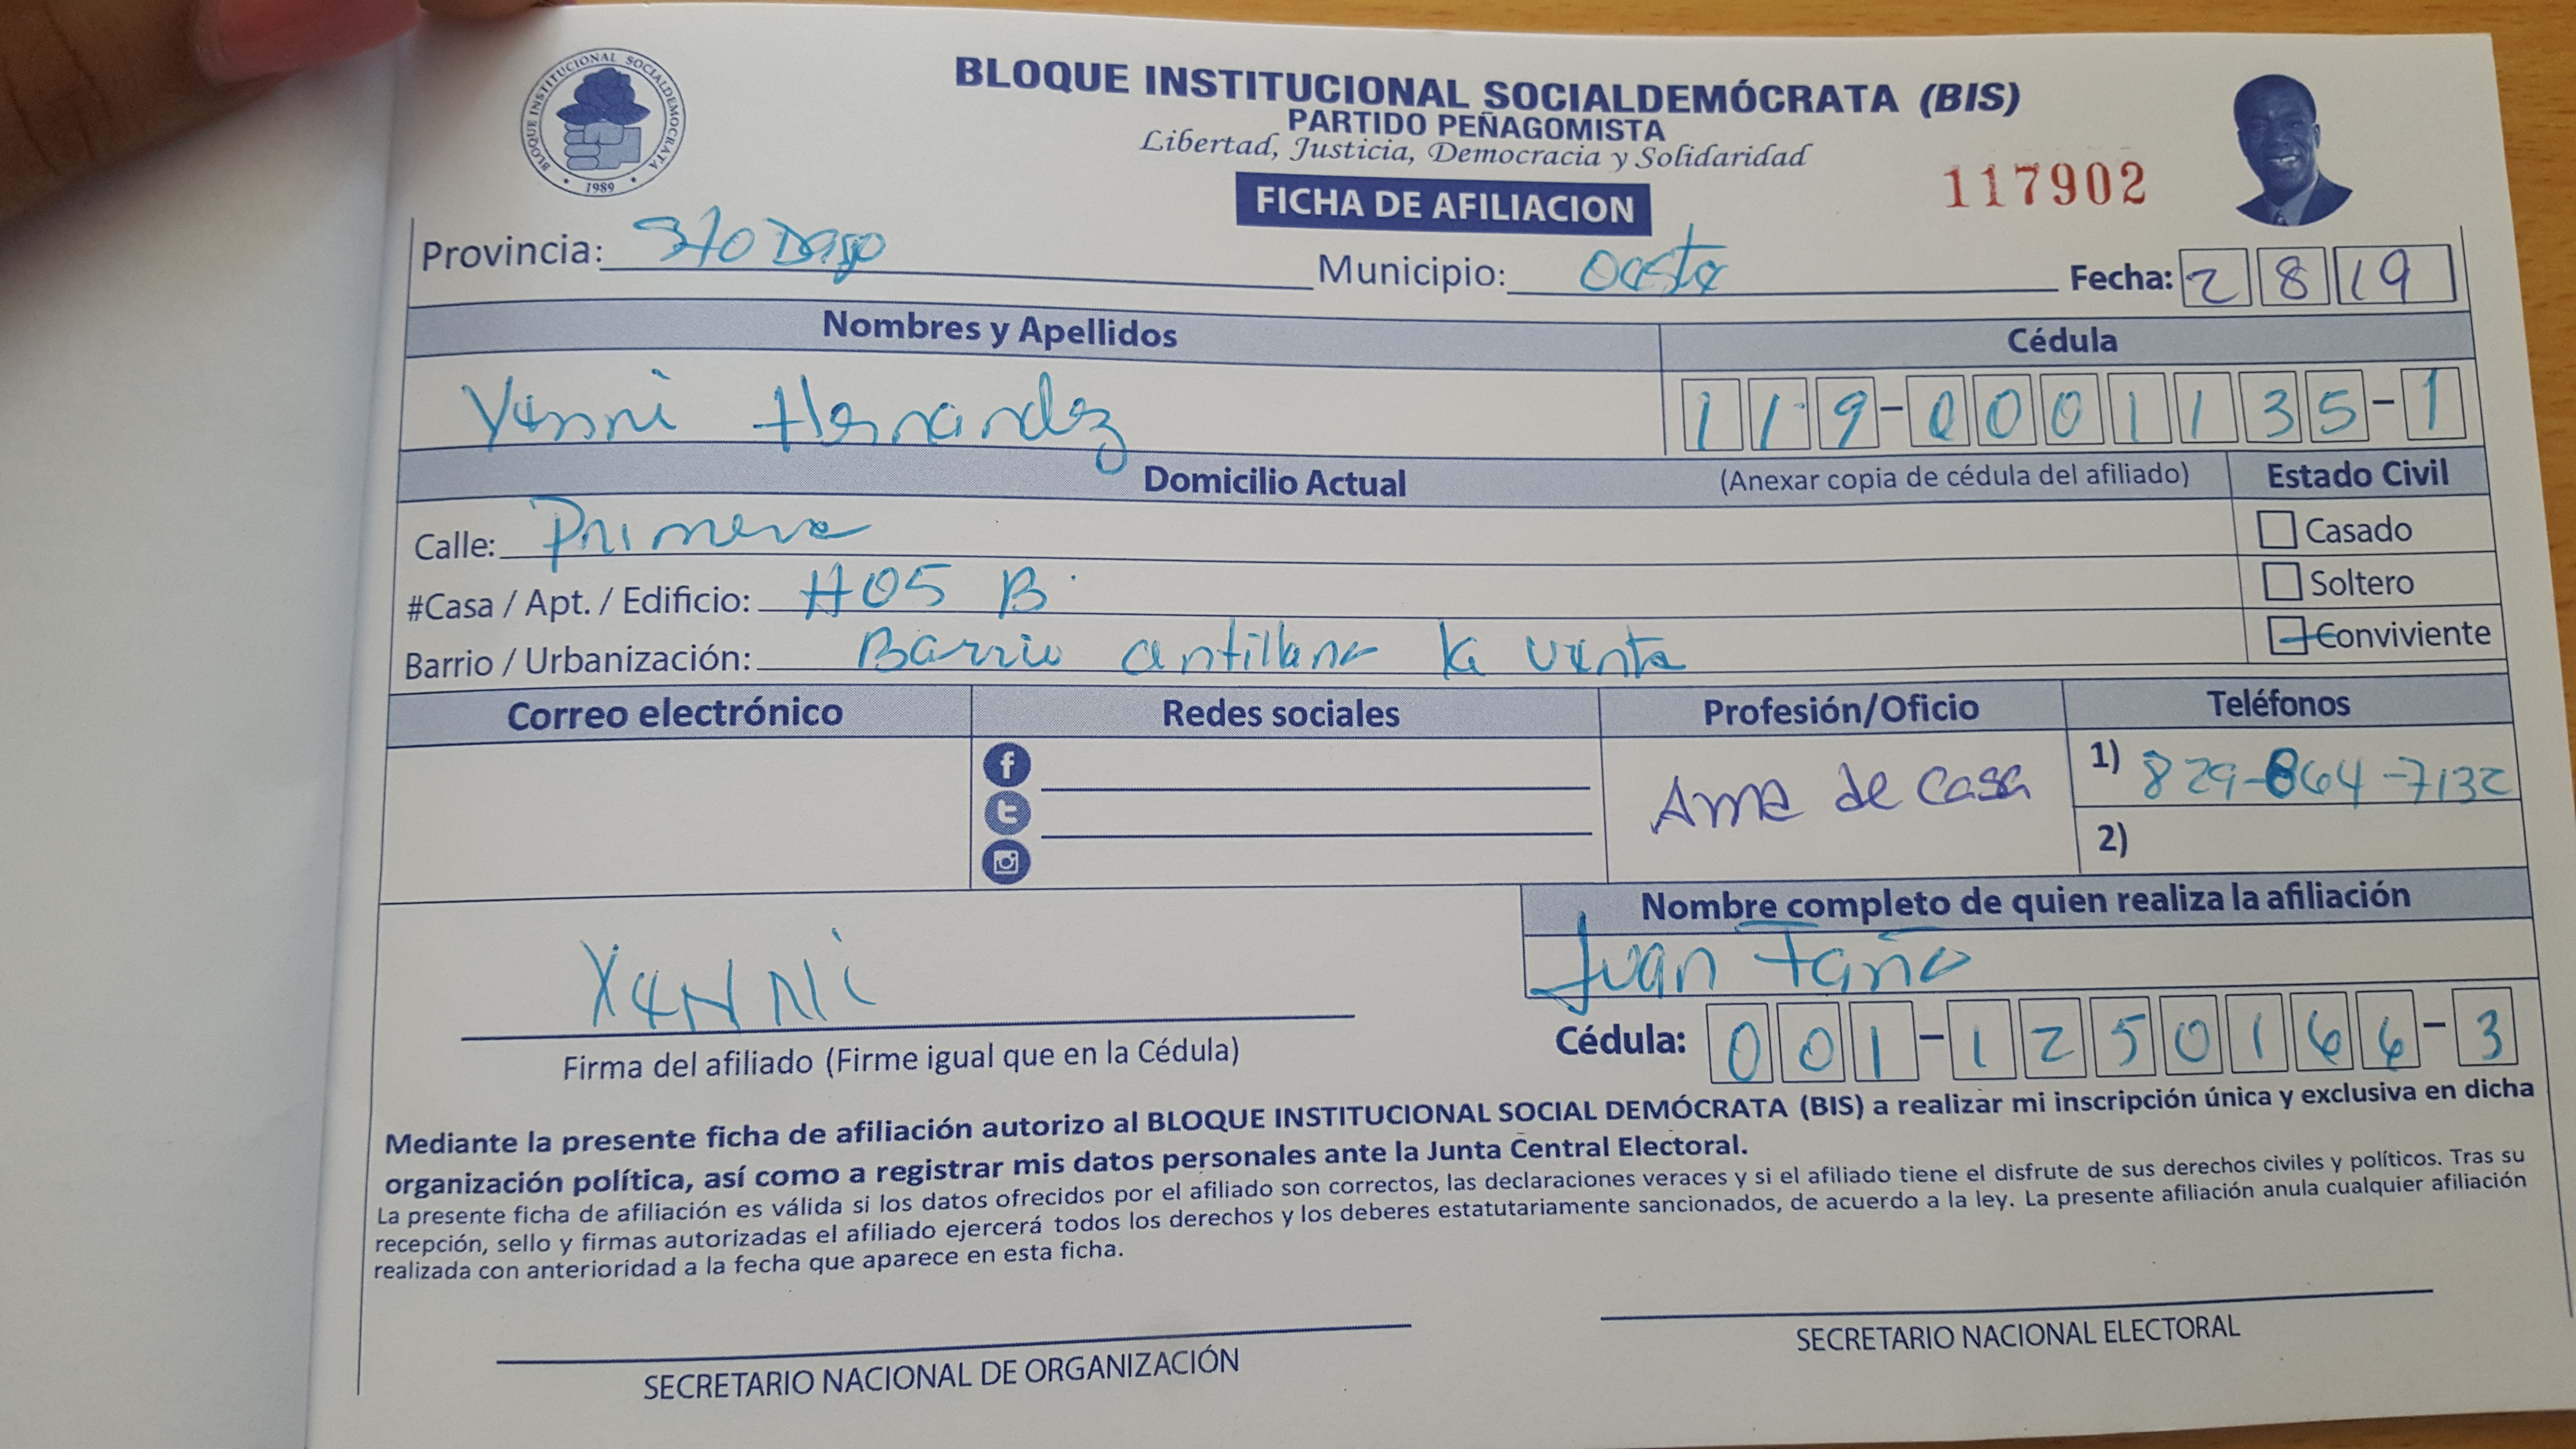 BLOQUE INSTITUCIONAL SOCIALDEMOCRATA
1989
BLOQUE INSTITUCIONAL SOCIALDEMÓCRATA (BIS)
PARTIDO PEÑAGOMISTA
Libertad, Justicia, Democracia y Solidaridad
FICHA DE AFILIACION
117902
Provincia: Sto Dgo
Municipio: Oeste
Fecha: 2 8 19
Nombres y Apellidos
Cédula
Yenni Hernandez
119-0001135-1
Domicilio Actual
(Anexar copia de cédula del afiliado)
Estado Civil
Calle: Primera
Casado
#Casa / Apt. / Edificio: #05 B
Soltero
Barrio / Urbanización: Barrio antillana la venta
Conviviente
Correo electrónico
Redes sociales
Profesión/Oficio
Teléfonos
Ama de casa
1) 829-864-7132
2)
Nombre completo de quien realiza la afiliación
Juan
YENNi
Firma del afiliado (Firme igual que en la Cédula)
Cédula: 001-1250166-3
Mediante la presente ficha de afiliación autorizo al BLOQUE INSTITUCIONAL SOCIAL DEMÓCRATA (BIS) a realizar mi inscripción única y exclusiva en dicha
organización política, así como a registrar mis datos personales ante la Junta Central Electoral.
La presente ficha de afiliación es válida si los datos ofrecidos por el afiliado son correctos, las declaraciones veraces y si el afiliado tiene el disfrute de sus derechos civiles y políticos. Tras su
recepción, sello y firmas autorizadas el afiliado ejercerá todos los derechos y los deberes estatutariamente sancionados, de acuerdo a la ley. La presente afiliación anula cualquier afiliación
realizada con anterioridad a la fecha que aparece en esta ficha.
SECRETARIO NACIONAL DE ORGANIZACIÓN
SECRETARIO NACIONAL ELECTORAL